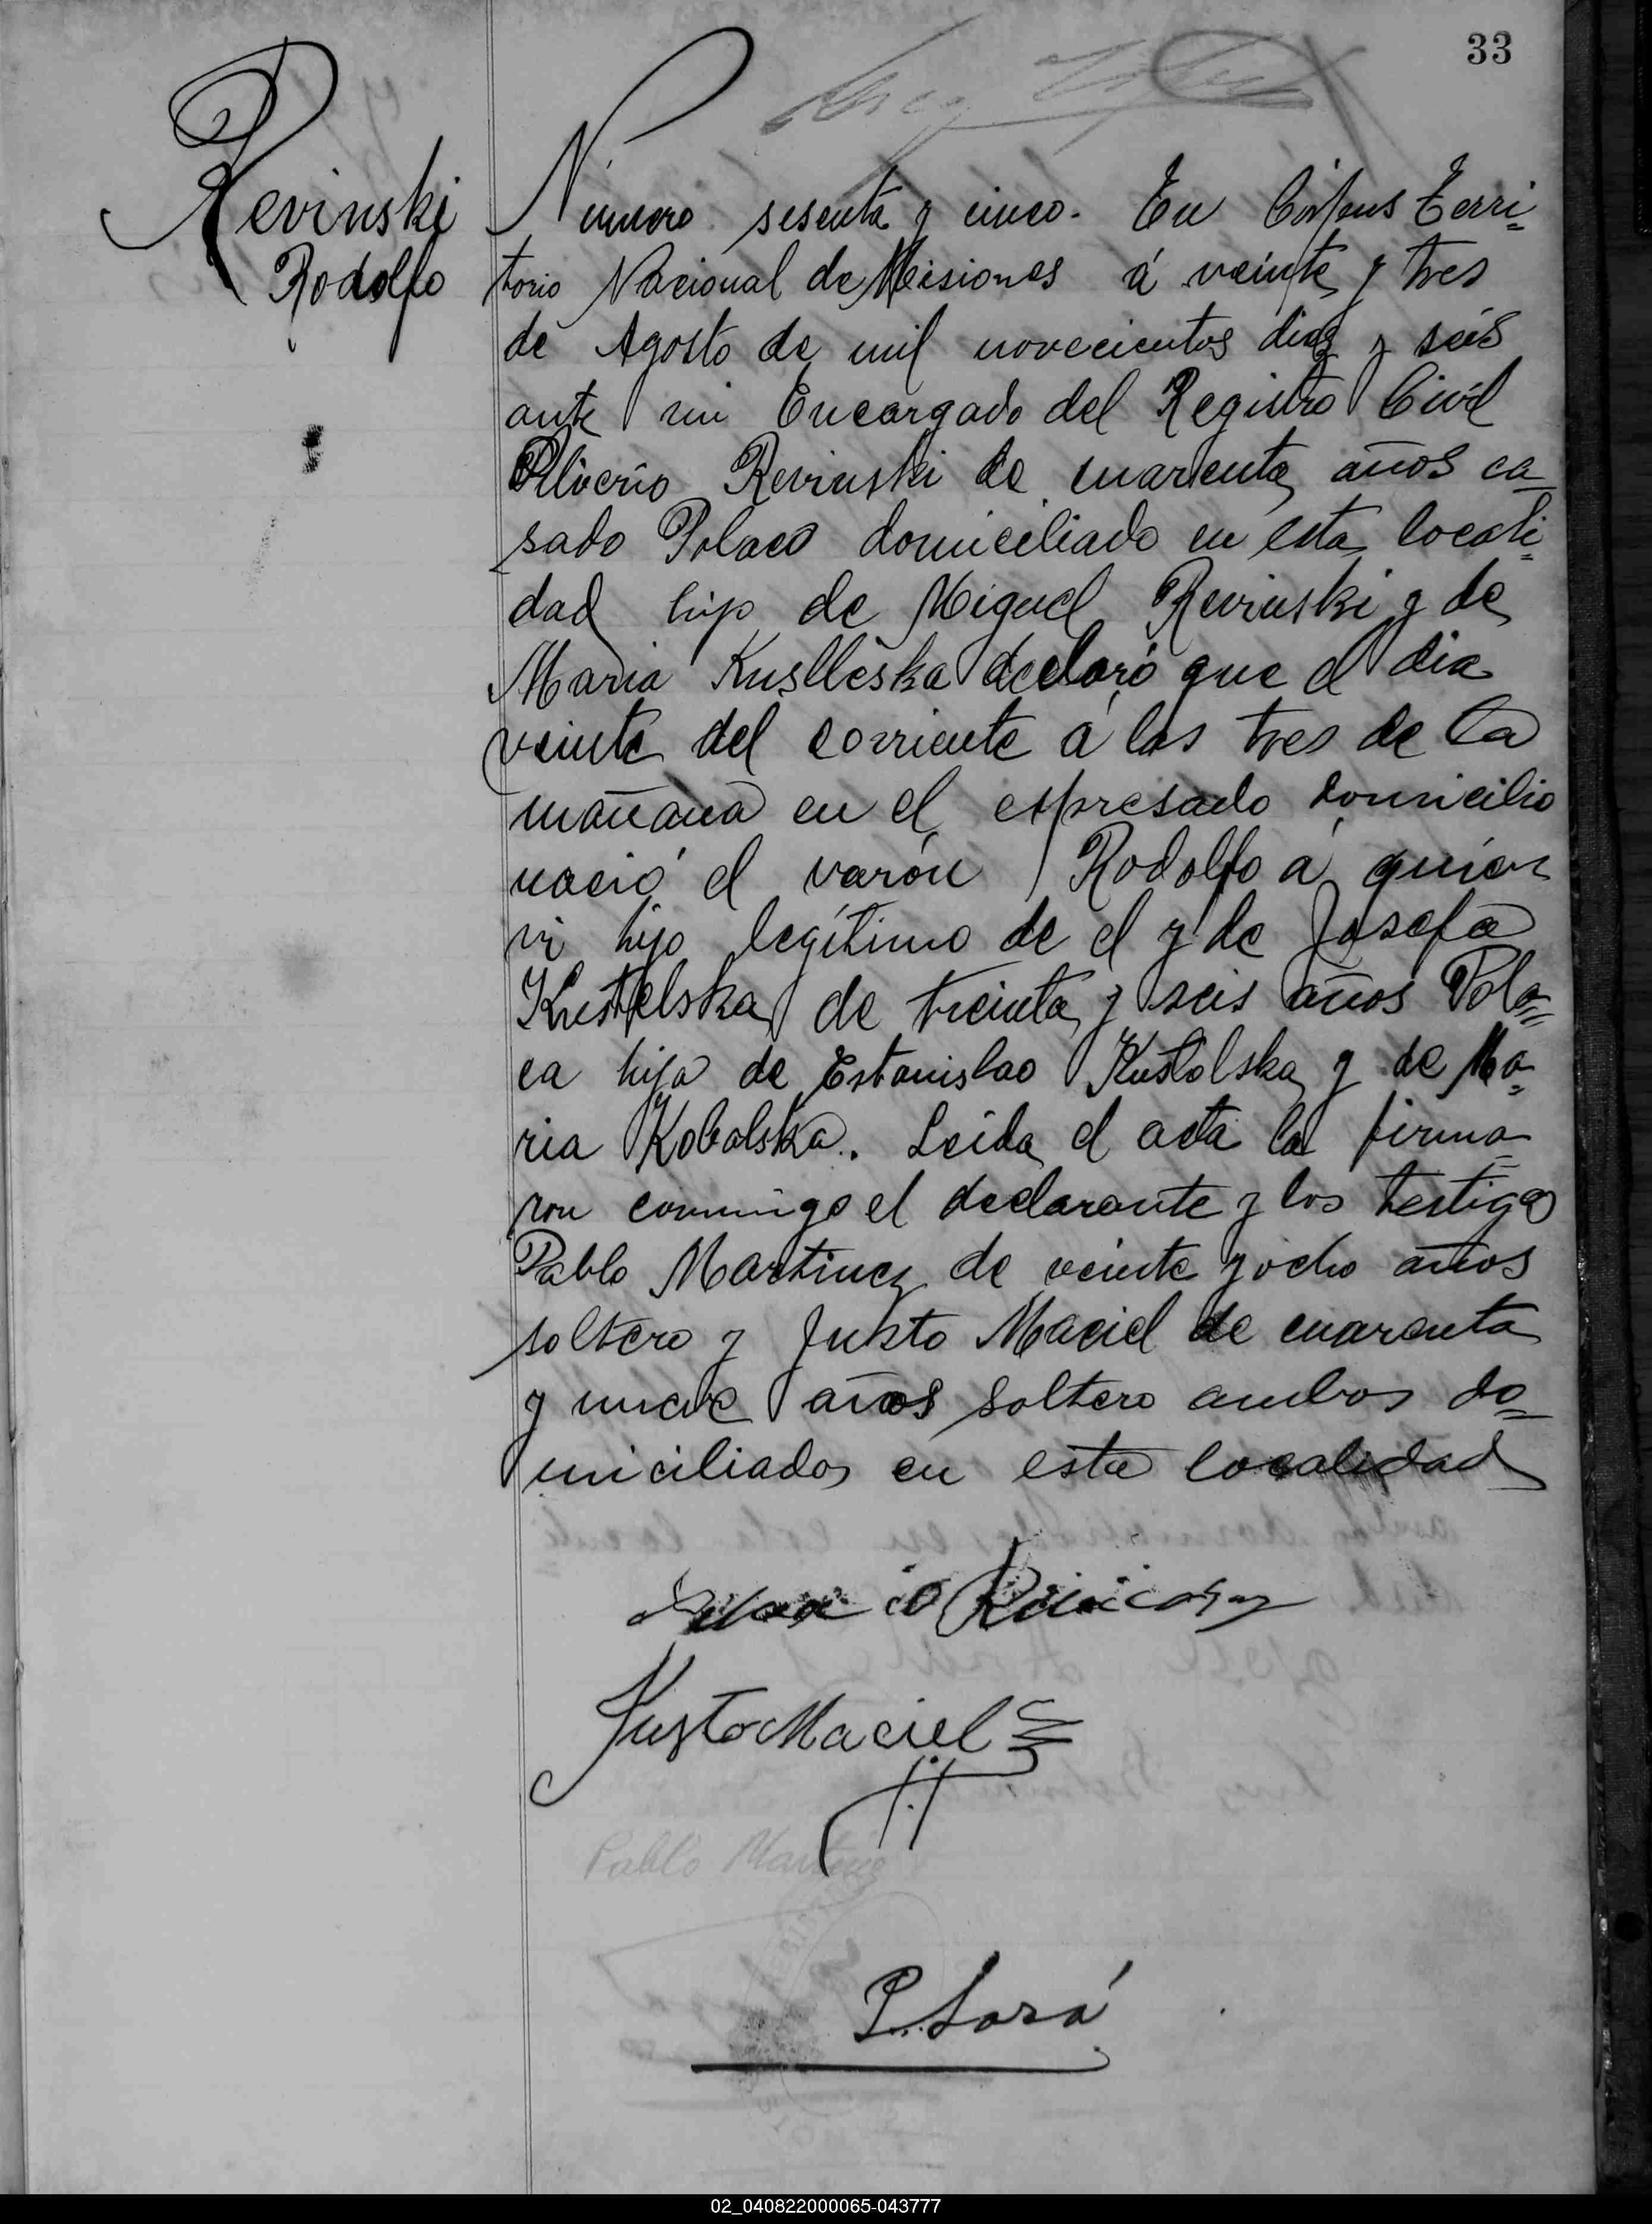 33
Revinski
Rodolfo
Número sesenta y cinco. En Corpus Terri=
torio Nacional de Misiones á veinte y tres
de Agosto de mil novecientos diez y seis
ante mi Encargado del Registro Civil
Revinski de cuarenta años ca=
sado Polaco domiciliado en esta locali=
dad hijo de Miguel Revinski y de
Maria Kuslleska declaró que el dia
veinte del corriente á las tres de la
mañana en el espresado domicilio
nació el varón Rodolfo á quien
vi hijo legítimo de el y de Josefa
de treinta y seis años Pola=
ca hija de Estanislao Kustolska y de Ma=
ria Kobalska. Leida el acta la firma=
ron conmigo el declarante y los testigos
Pablo Martinez de veinte y ocho años
soltero y Justo Maciel de cuarenta
y nueve años soltero ambos do=
miciliados en esta localidad
Justo Maciel
Pablo Martinez
P. Sosá
02_040822000065-043777